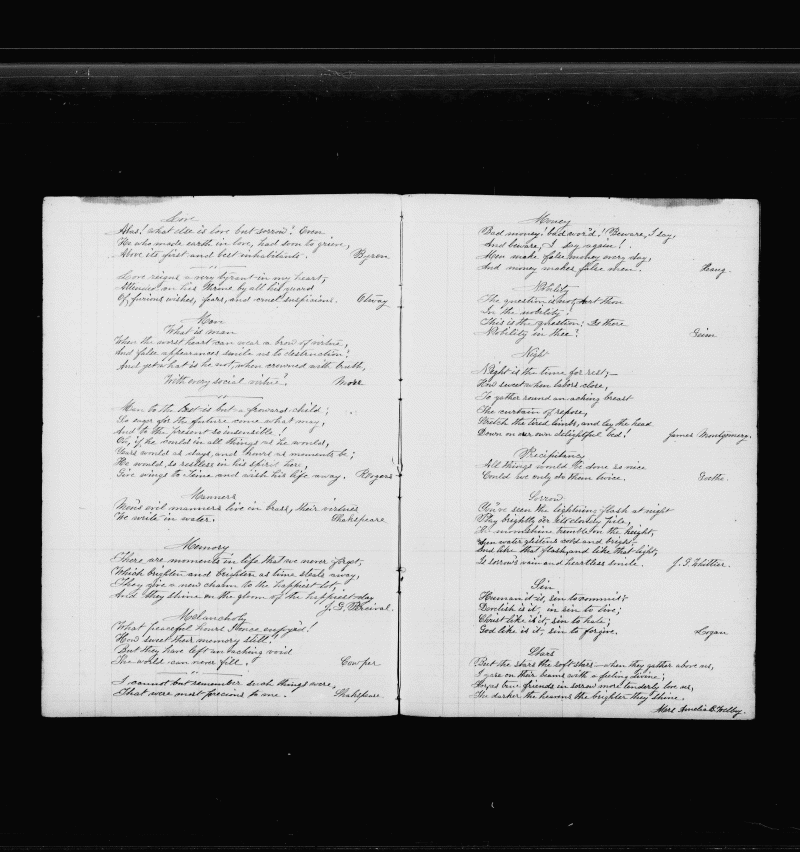 Love
Alas! what else is love but sorrow? Even
He who made earth in love, had soon to grieve,
Above its first and best inhabitants. Byron
Love reigns a very tyrant in my heart,
Attended on his throne by all his guard
Of furious wishes, fears, and cruel suspicions. Otway
Man
What is man
When the worst heart can wear a brow of virtue,
And false appearances smile us to destruction!
And yet what is he not, when crowned with truth,
With every social virtue! More
Man to the last is but a froward child;
So eager for the future come what may,
And to the present so insensible!
Oh, if he could in all things as he would,
Years would as days, and hours as moments be;
He would, so restless in his spirit here,
Give wings to Time and wish his life away. Rogers
Manners
Men's evil manners live in brass, their virtues
We write in water. Shakspeare
Memory
There are moments in life that we never forget,
Which brighten and brighten as time steals away,
They give a new charm to the happiest lot,
And they shine on the gloom of the happiest day
J. G. Percival.
Melancholy
What peaceful hours I once enjoyed!
How sweet their memory still!
But they have left an aching void
The world can never fill. Cowper
I cannot but remember such things were,
That were most precious to me. Shakspeare
Money
Bad money! bad world!! Beware, I say,
And beware, I say again!
Men make false money every day,
And money makes false men. Haug.
Nobility
The question is not, Art thou
In the nobility?
This is the question; Is there
Nobility in thee? Gleim
Night
Night is the time for rest;—
How sweet when labors close,
To gather round an aching breast
The curtain of repose,
Stretch the tired limbs, and lay the head
Down on our own delightful bed! James Montgomery.
Precipitancy
All things would be done so nice
Could we only do them twice. Goethe.
Sorrow
You've seen the lightning flash at night
Play brightly o'er its cloudy pile,
The moonshine tremble on the height,
When water glistens cold and bright
And like that flash, and like that light,
Is sorrow's vain and heartless smile. J. G. Whittier.
Sin
Human it is, sin to commit;
Devilish is it, in sin to live;
Christ like is it, sin to hate;
God like is it, sin to forgive. Logan
Stars
But the stars the soft stars—when they gather above us,
I gaze on their beams with a feeling divine;
For as true friends in sorrow more tenderly love us,
The darker the heavens the brighter they shine.
Mrs. Amelia B. Welby.